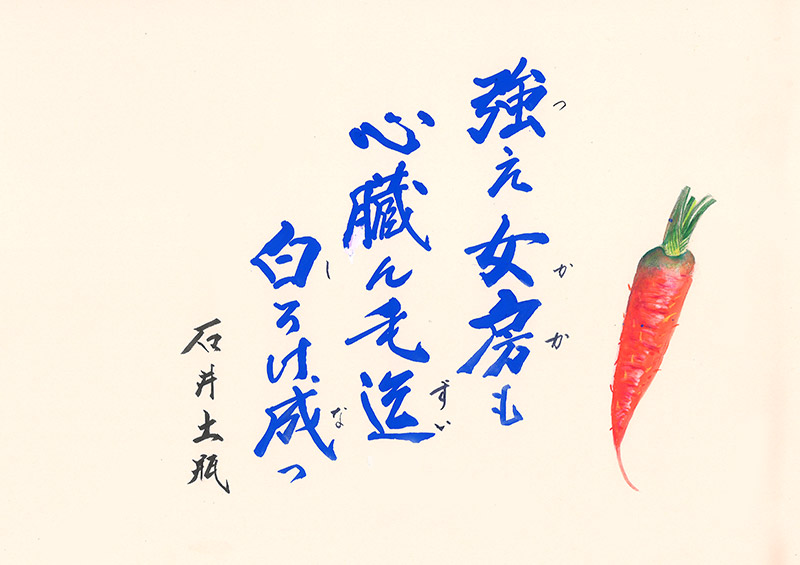 強え女房も
つ
かか
心臓ん毛迄
ずい
白ろけ成っ
し
な
石井土眠